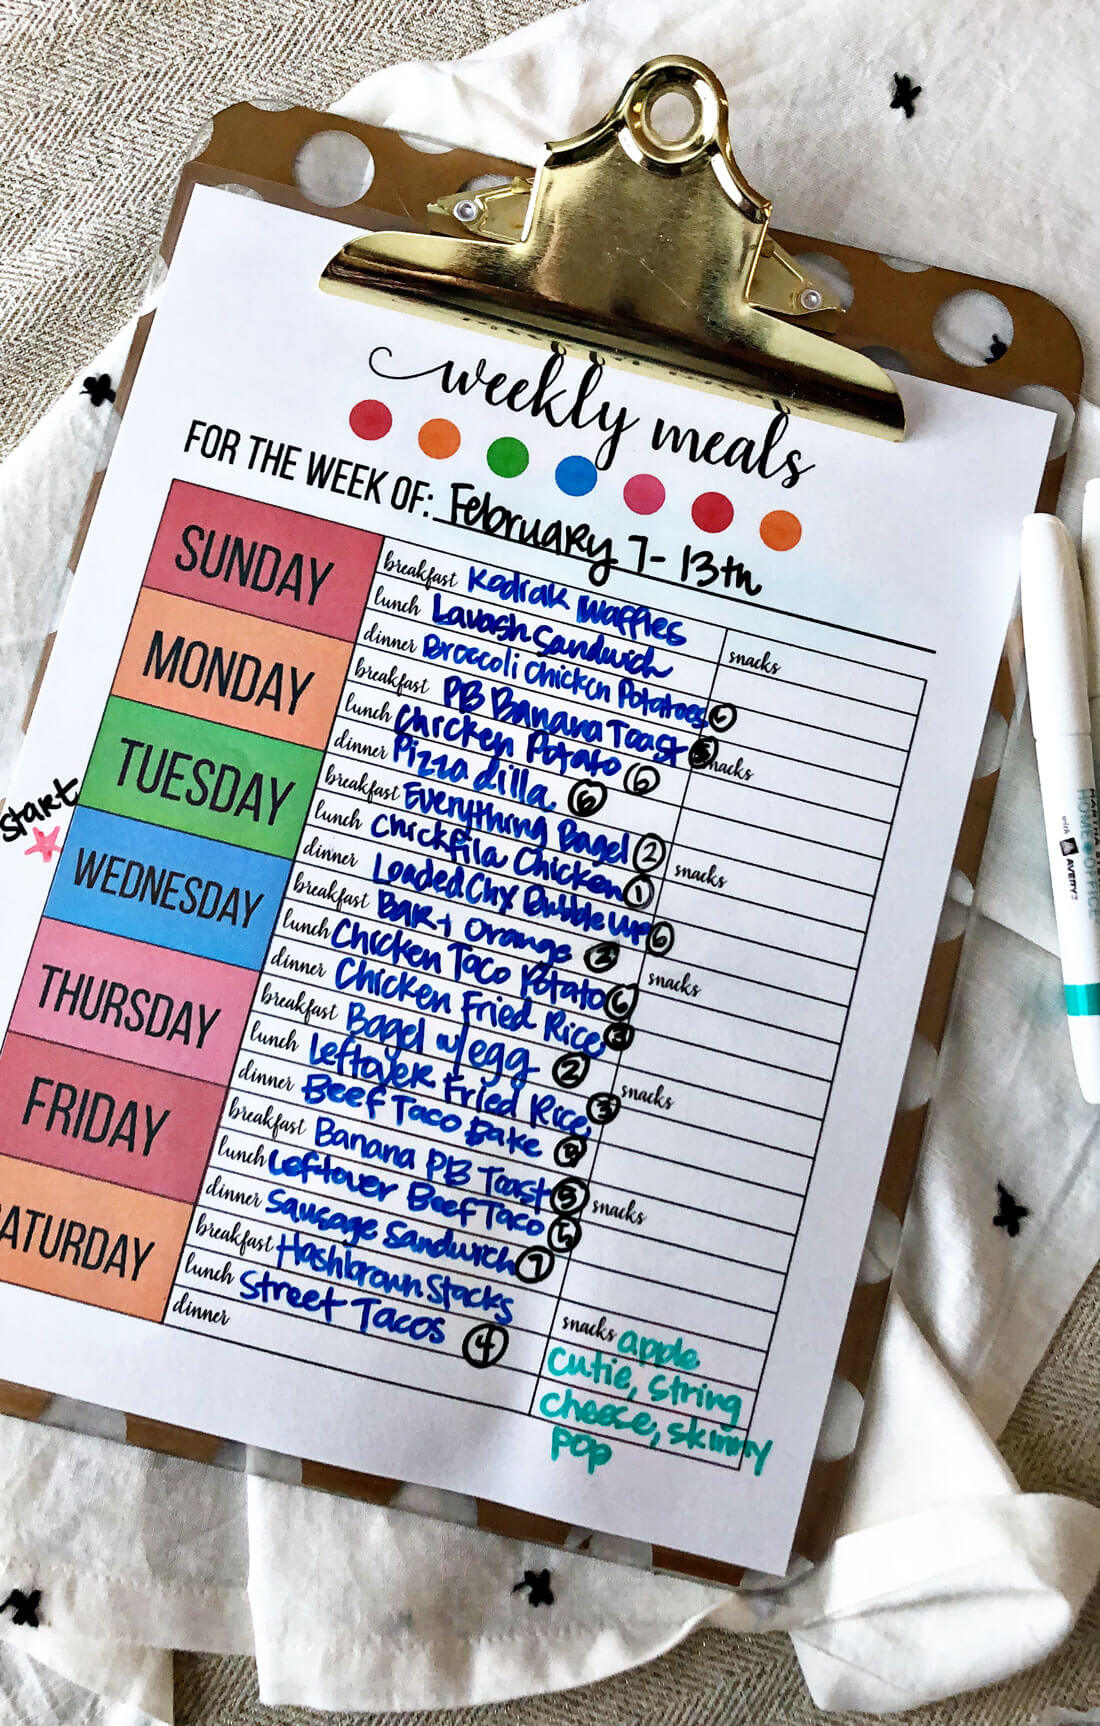 weekly meals
FOR THE WEEK OF: February 7-13th
SUNDAY
breakfast Kodiak Waffles
lunch Lavash Sandwich
dinner Broccoli Chicken Potatoes 6
snacks
MONDAY
breakfast PB Banana Toast 5
lunch Chicken Potato 6
dinner Pizzadilla 6
snacks
TUESDAY
breakfast Everything Bagel 2
lunch Chickfila Chicken 1
dinner Loaded Chx Bubble up 6
snacks
start
WEDNESDAY
breakfast Bar + Orange
lunch Chicken Taco Potato 6
dinner Chicken Fried Rice
snacks
THURSDAY
breakfast Bagel w/ egg 2
lunch Leftover Fried Rice 3
dinner Beef Taco Bake
snacks
FRIDAY
breakfast Banana PB Toast 5
lunch Leftover Beef Taco
dinner Sausage Sandwich 7
snacks
SATURDAY
breakfast Hashbrown Stacks
lunch Street Tacos 4
dinner
snacks apple
cutie, string
cheese, skinny
pop
HOME OFFICE
with AVERY